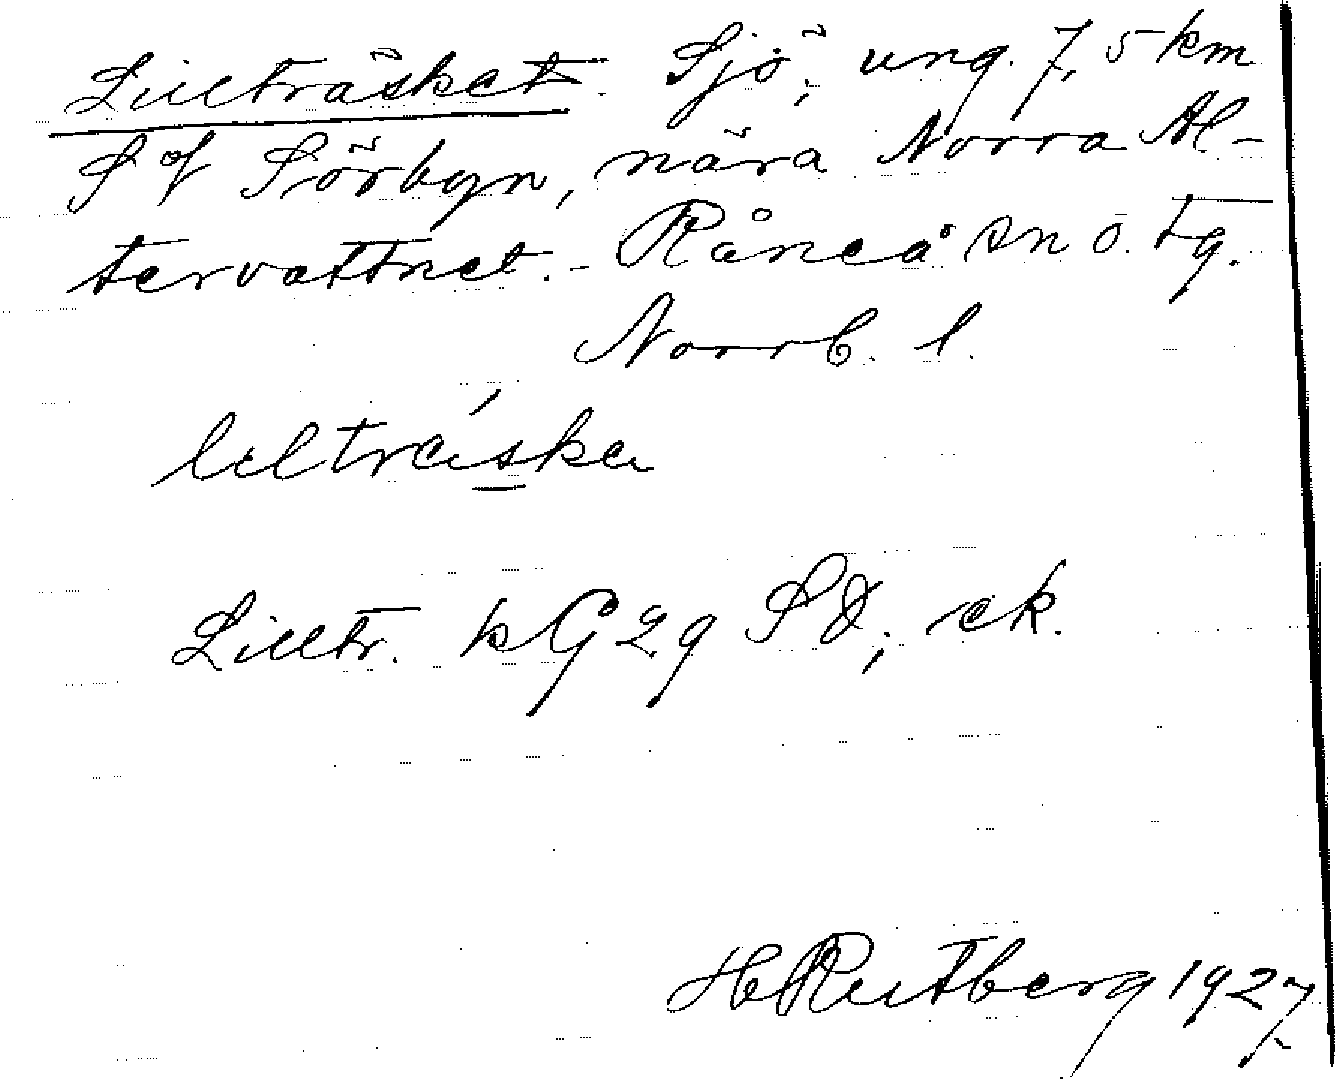 Lillträsket. Sjö, ung. 7,5 km
S of Sörbyn, nära Norra Al-
tervattnet. - Råneå sn o. tg.
Norrb. l.
liltræska
Lilltr. kG 29 SO, ek.
H Rutberg 1927